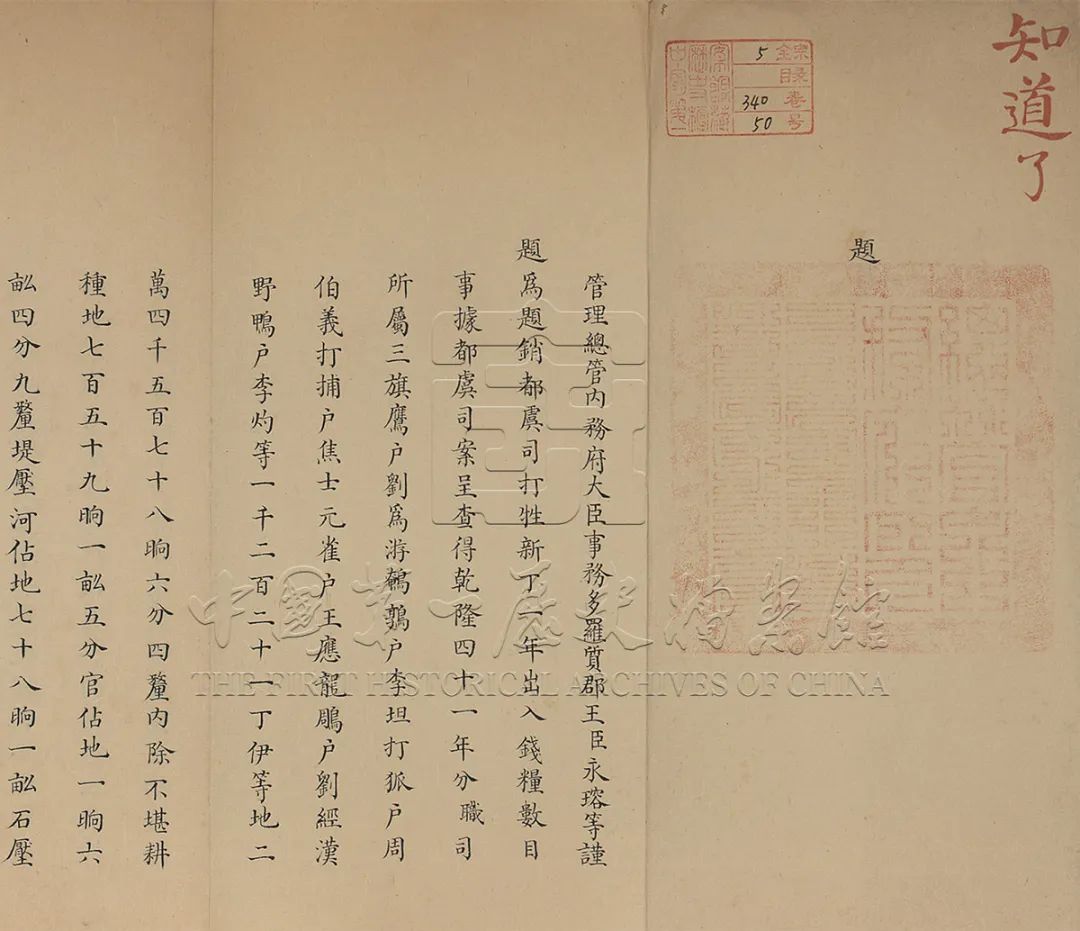 知道了
全宗 5
目录
卷 340
号 50
題
管理總管內務府大臣事務多羅質郡王臣永瑢等謹
題爲題銷都虞司打牲新丁一年出入錢糧數目
事據都虞司案呈查得乾隆四十一年分職司
所屬三旗鷹户劉爲游鵪鶉户李坦打狐户周
伯義打捕户焦士元雀户王應龍鵰户劉經漢
野鴨户李灼等一千二百二十一丁伊等地二
萬四千五百七十八晌六分四釐內除不堪耕
種地七百五十九晌一畝五分官佔地一晌六
畝四分九釐堤壓河佔地七十八晌一畝石壓
中國第一歷史檔案館
THE FIRST HISTORICAL ARCHIVES OF CHINA